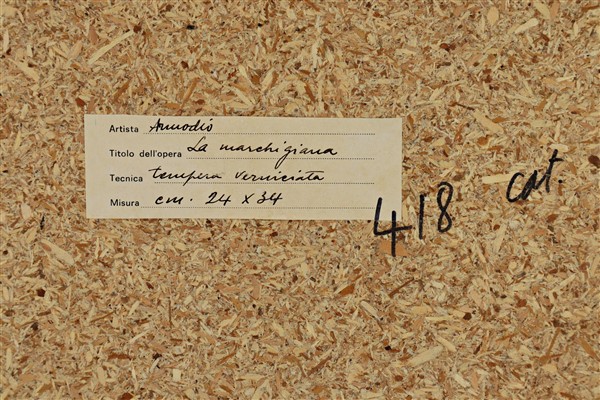 Artista Annodio
Titolo dell'opera La marchigiana
Tecnica tempera verniciata
Misura cm. 24 x 34
418 cat.